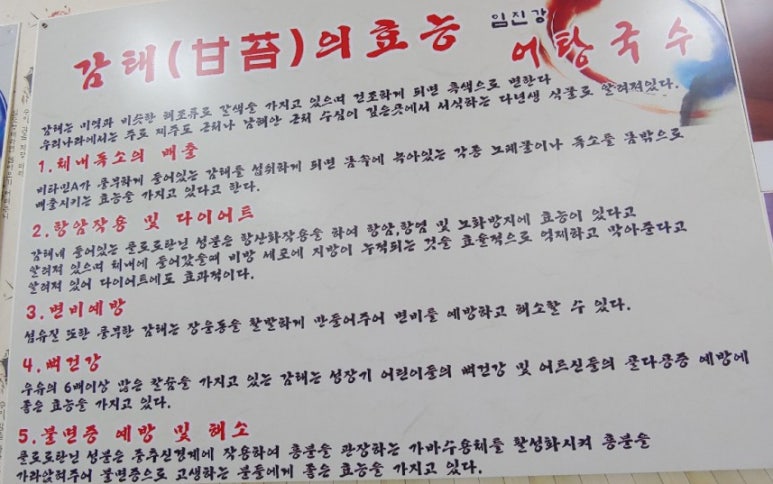 감태(甘苔)의효능 임진강 어탕국수
감태는 미역과 비슷한 해조류로 갈색을 가지고 있으며 건조하게 되면 흑색으로 변한다
우리나라에서는 주로 제주도 근처나 남해안 근처 수심이 깊은곳에서 서식하는 다년생 식물로 알려져있다.
1.체내독소의 배출
비타민A가 풍부하게 들어있는 감태를 섭취하게 되면 몸속에 녹아있는 각종 노폐물이나 독소를 몸밖으로
배출시키는 효능을 가지고 있다고 한다.
2.항암작용 및 다이어트
감태네 들어있는 플로로탄닌 성분은 항산화작용을 하여 항암,항염 및 노화방지에 효능이 있다고
알려져 있으며 체내에 들어갔을때 비방 세포에 지방이 누적되는 것을 효율적으로 억제하고 막아준다고
알려져 있어 다이어트에도 효과적이다.
3.변비예방
섬유질 또한 풍부한 감태는 장운동을 활발하게 만들어주어 변비를 예방하고 해소할 수 있다.
4.뼈건강
우유의 6배이상 많은 칼슘을 가지고 있는 감태는 성장기 어린이들의 뼈건강 및 어르신들의 골다공증 예방에
좋은 효능을 가지고 있다.
5.불면증 예방 및 해소
플로로탄닌 성분은 중추신경계에 작용하여 흥분을 관장하는 가바수용체를 활성화시켜 흥분을
가라앉혀주어 불면증으로 고생하는 분들에게 좋은 효능을 가지고 있다.